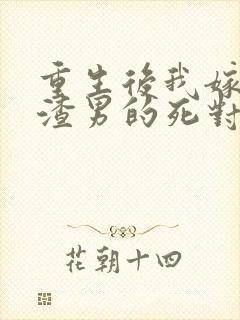 重生後我嫁
渣男的死對
花朝十四